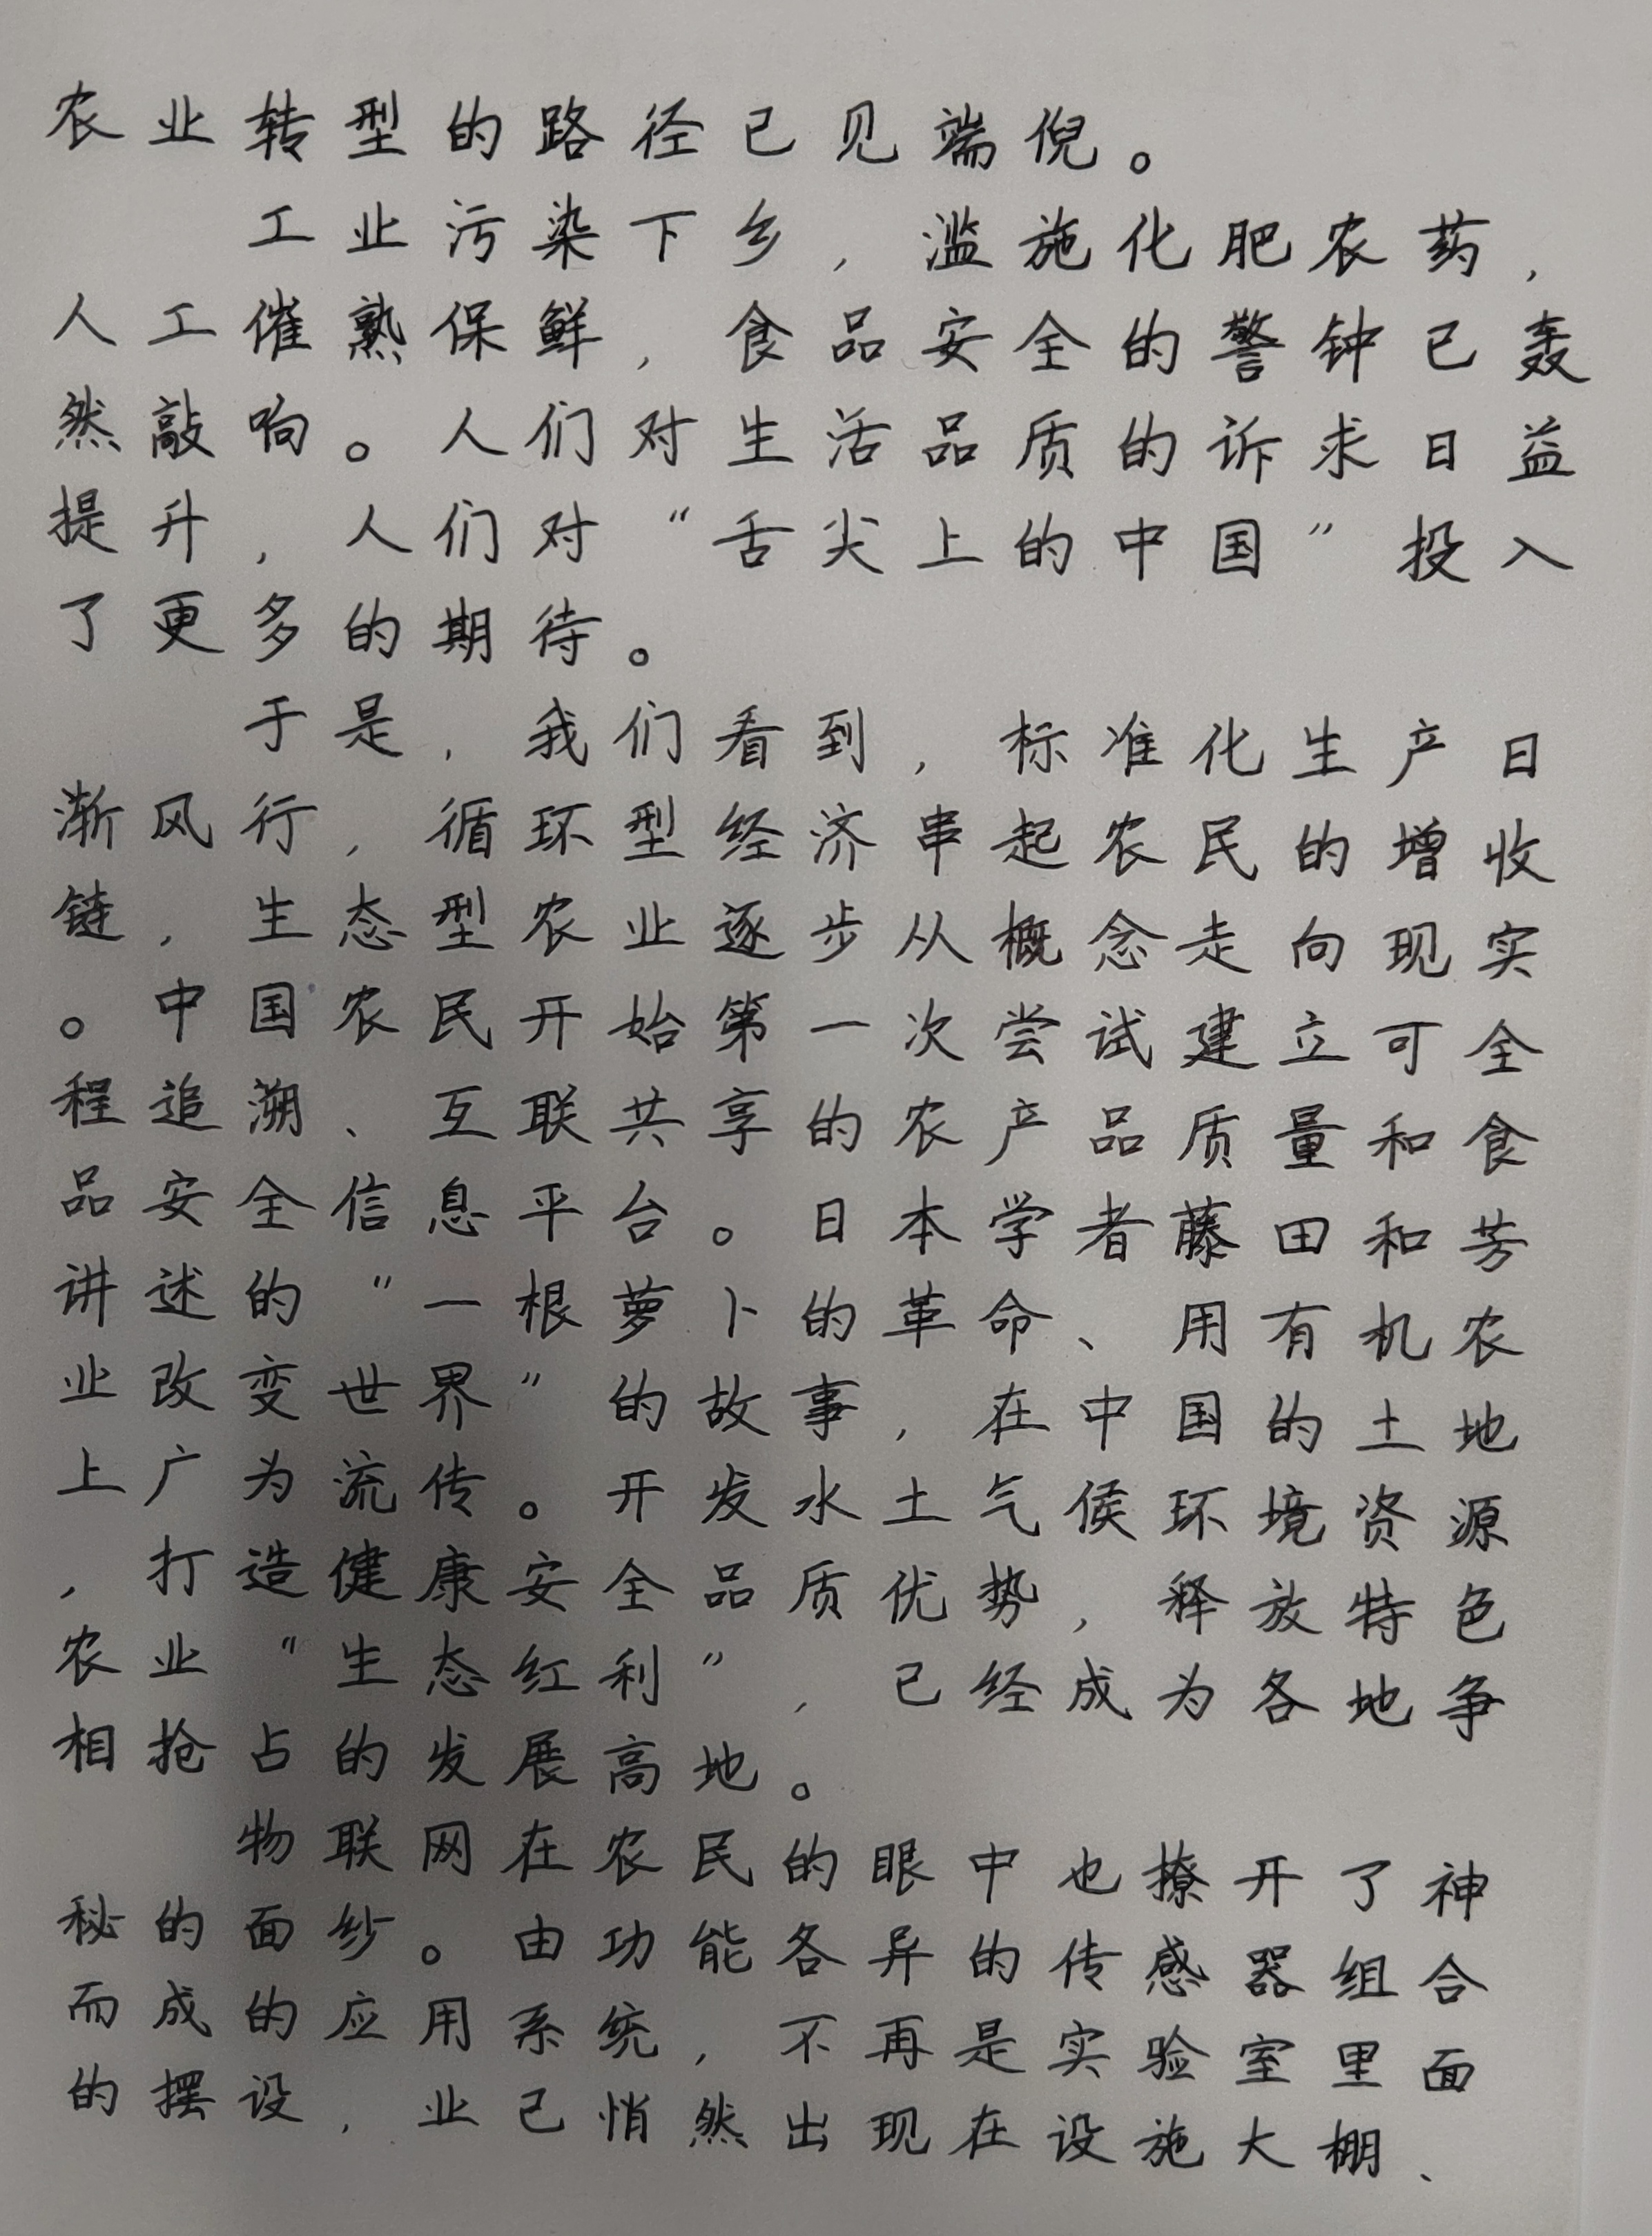 农业转型的路径已见端倪。
工业污染下乡，滥施化肥农药，
人工催熟保鲜，食品安全的警钟已轰
然敲响。人们对生活品质的诉求日益
提升，人们对“舌尖上的中国”投入
了更多的期待。
于是，我们看到，标准化生产日
渐风行，循环型经济串起农民的增收
链，生态型农业逐步从概念走向现实
。中国农民开始第一次尝试建立可全
程追溯、互联共享的农产品质量和食
品安全信息平台。日本学者藤田和芳
讲述的“一根萝卜的革命、用有机农
业改变世界”的故事，在中国的土地
上广为流传。开发水土气候环境资源
，打造健康安全品质优势，释放特色
农业“生态红利”，已经成为各地争
相抢占的发展高地。
物联网在农民的眼中也撩开了神
秘的面纱。由功能各异的传感器组合
而成的应用系统，不再是实验室里面
的摆设，业已悄然出现在设施大棚、